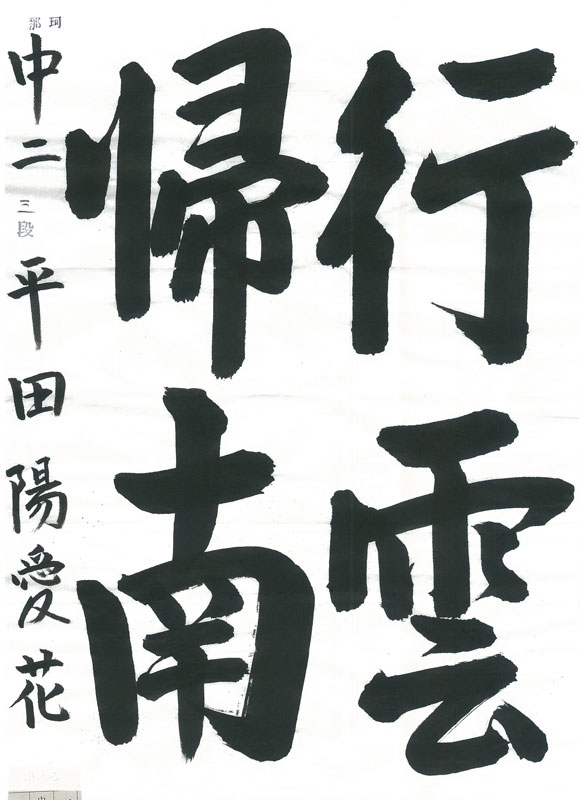 行雲
帰南
珂那
中二 三段 平田陽愛花